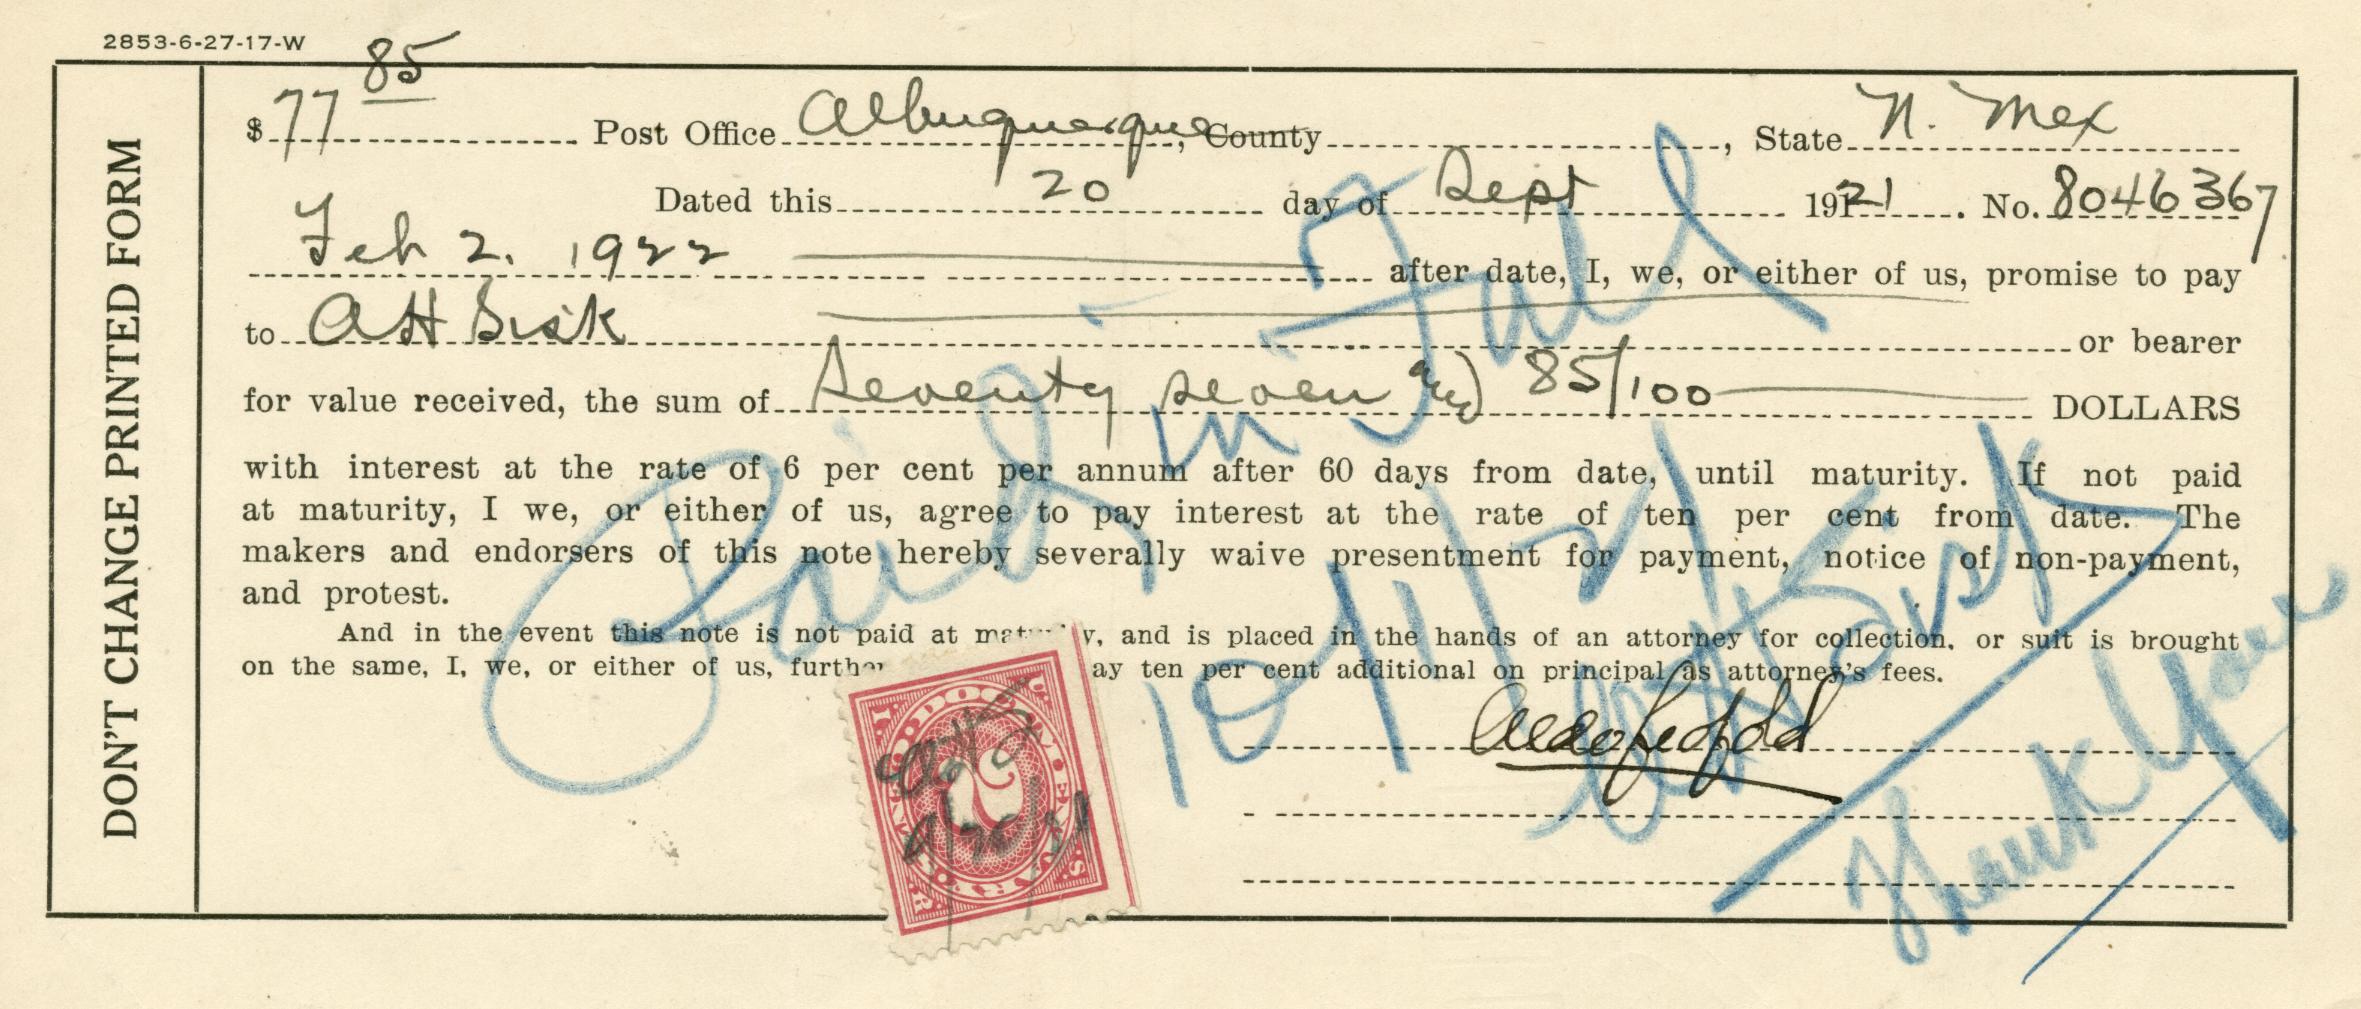 2853-6-27-17-W
DON'T CHANGE PRINTED FORM
$ 77 85 Post Office Albuquerque, County , State N. Mex
Dated this 20 day of Sept 1921. No. 8046367
Feb 2. 1922 after date, I, we, or either of us, promise to pay
to AH Sisk or bearer
for value received, the sum of Seventy seven and 85/100 DOLLARS
with interest at the rate of 6 per cent per annum after 60 days from date, until maturity. If not paid
at maturity, I we, or either of us, agree to pay interest at the rate of ten per cent from date. The
makers and endorsers of this note hereby severally waive presentment for payment, notice of non-payment,
and protest.
And in the event this note is not paid at maturity, and is placed in the hands of an attorney for collection, or suit is brought
on the same, I, we, or either of us, further ay ten per cent additional on principal as attorney's fees.
Paid in Full
10/1/21
AH Sisk
Thank You
U.S. INTER. REV.
DOCUMENTARY
2